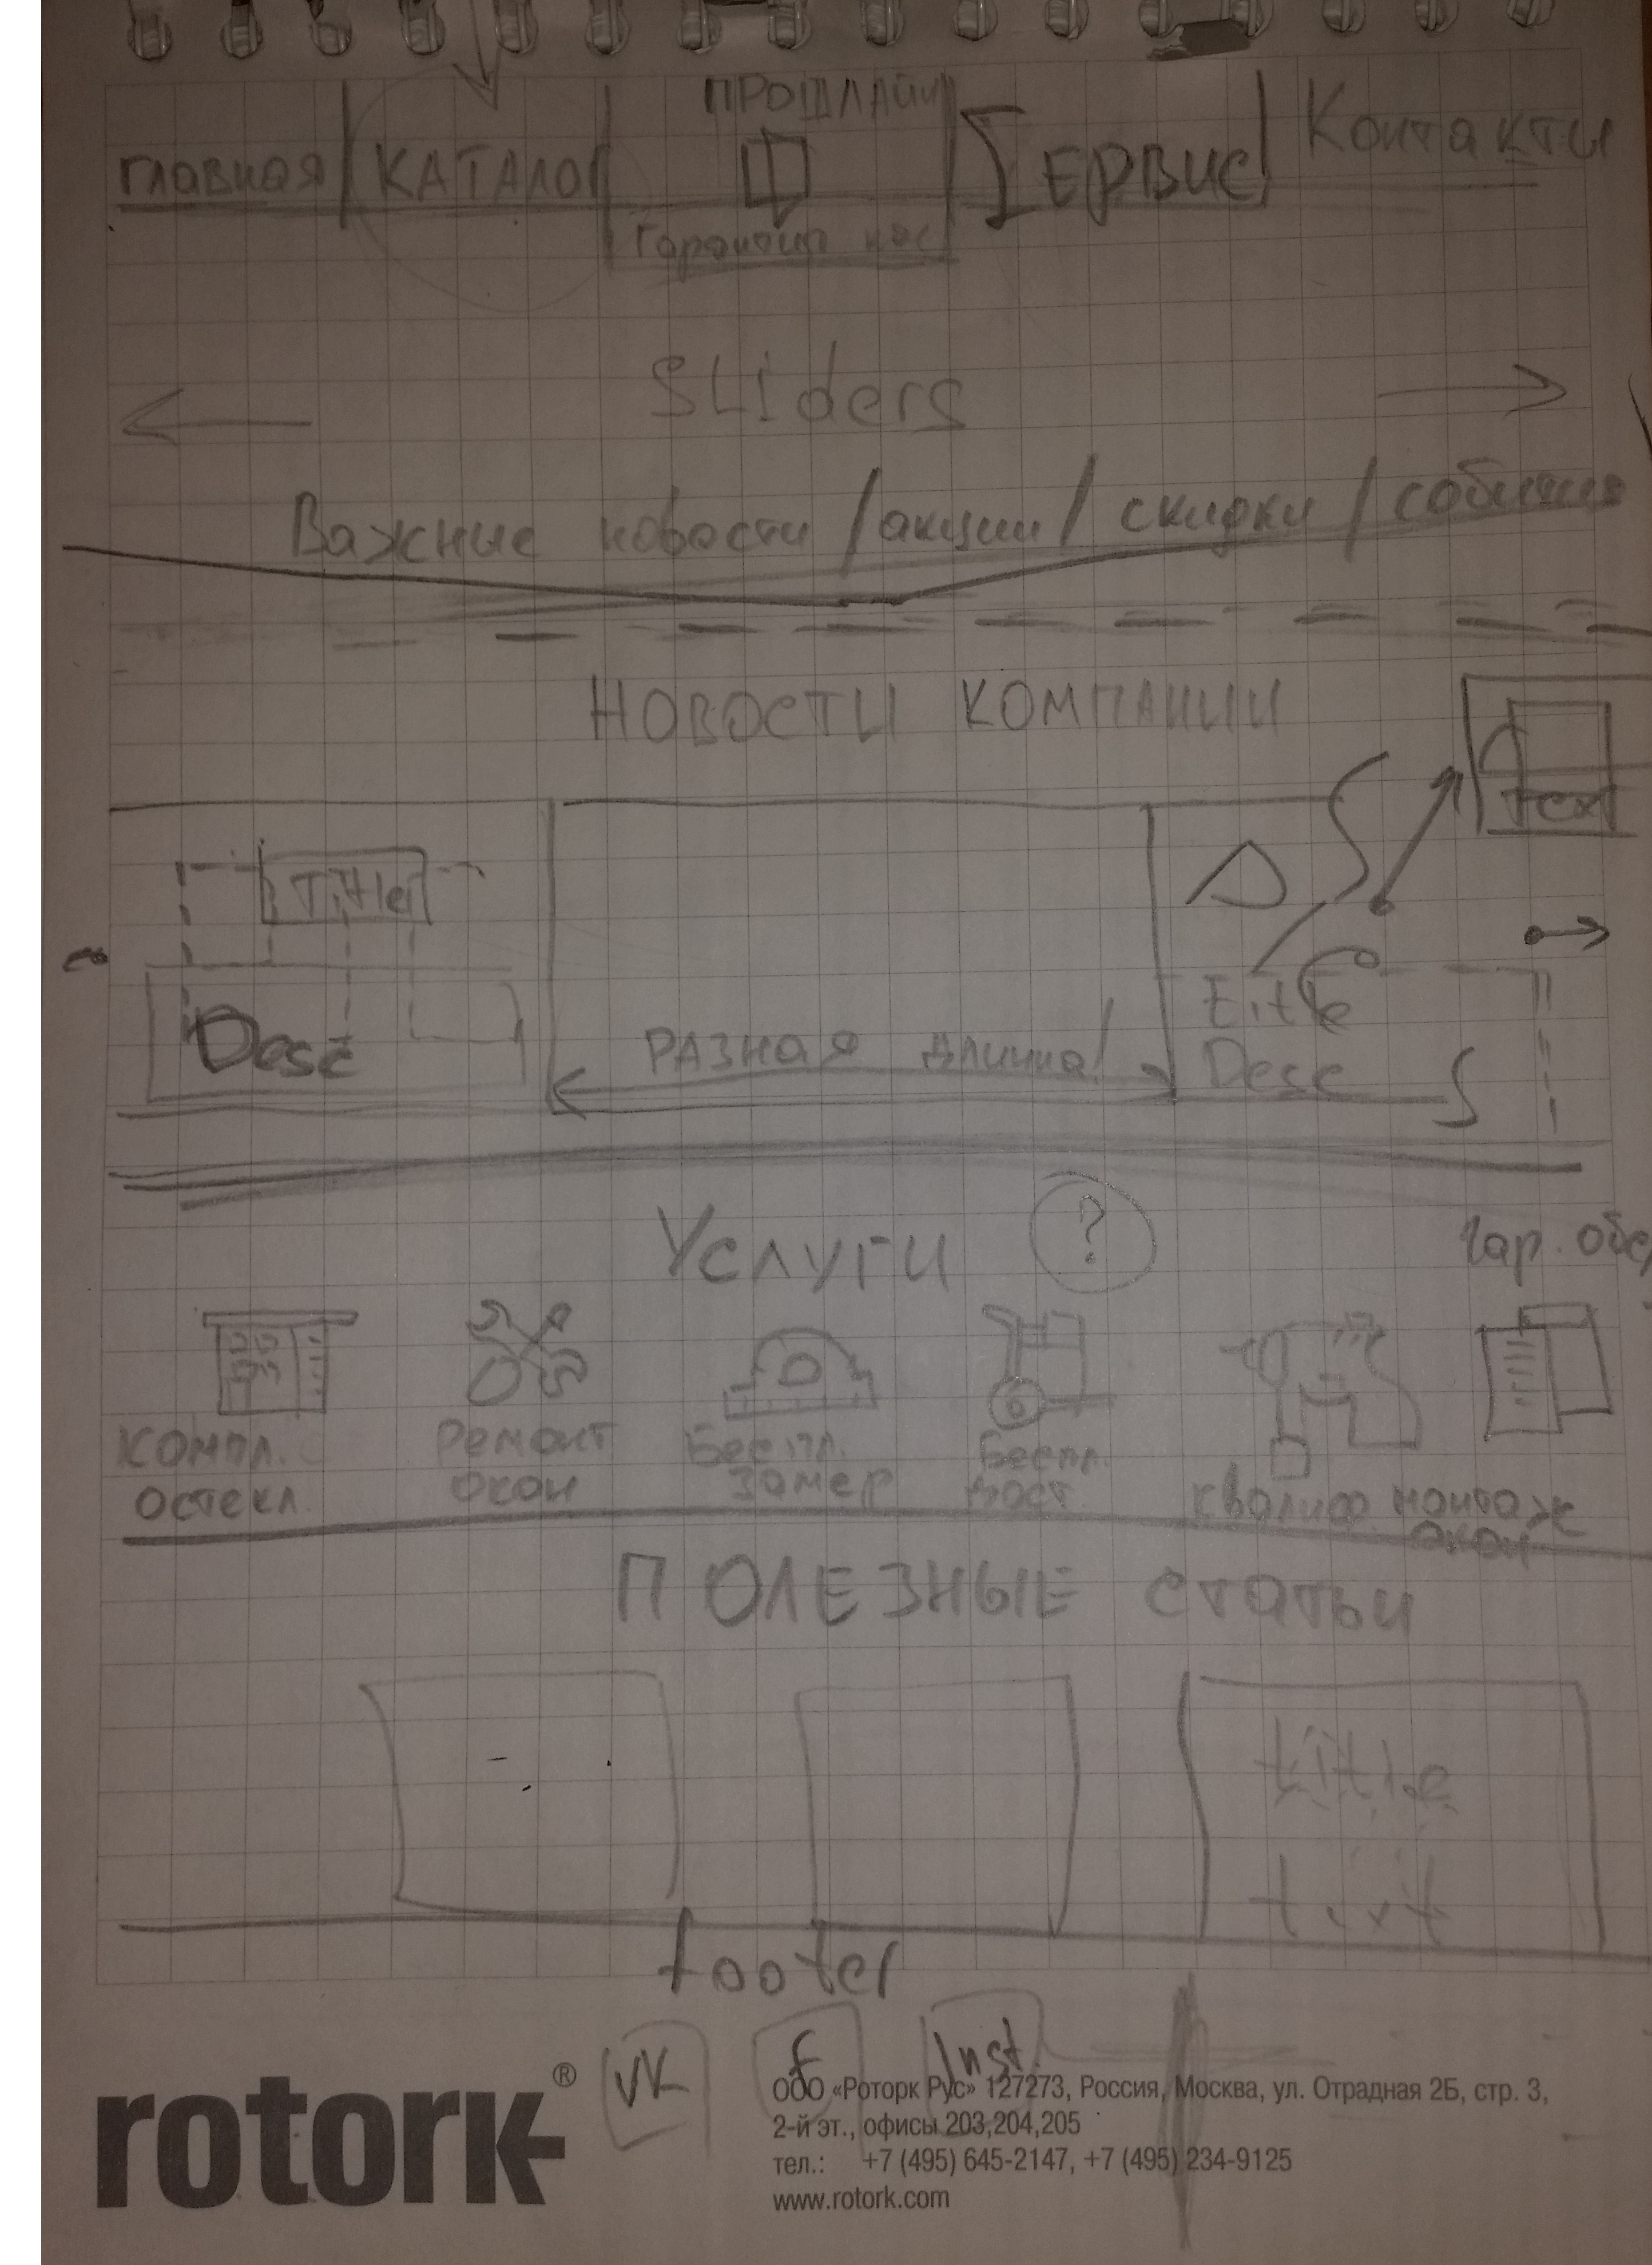 ПРОФЛАЙН
главная КАТАЛОГ СЕРВИС Контакты
Sliders
Важные новости / акции / скидки / события
НОВОСТИ КОМПАНИИ
text
Title
title
Desc
РАЗНАЯ длинна!
Desc
Услуги ?
гар. обс
Компл.
остекл.
Ремонт
окон
Беспл.
замер
Беспл.
дост
квалиф монтаж
окон
ПОЛЕЗНЫЕ статьи
title
text
footer
VK f Inst.
rotork®
ООО «Роторк Рус» 127273, Россия, Москва, ул. Отрадная 2Б, стр. 3,
2-й эт., офисы 203,204,205
тел.: +7 (495) 645-2147, +7 (495) 234-9125
www.rotork.com